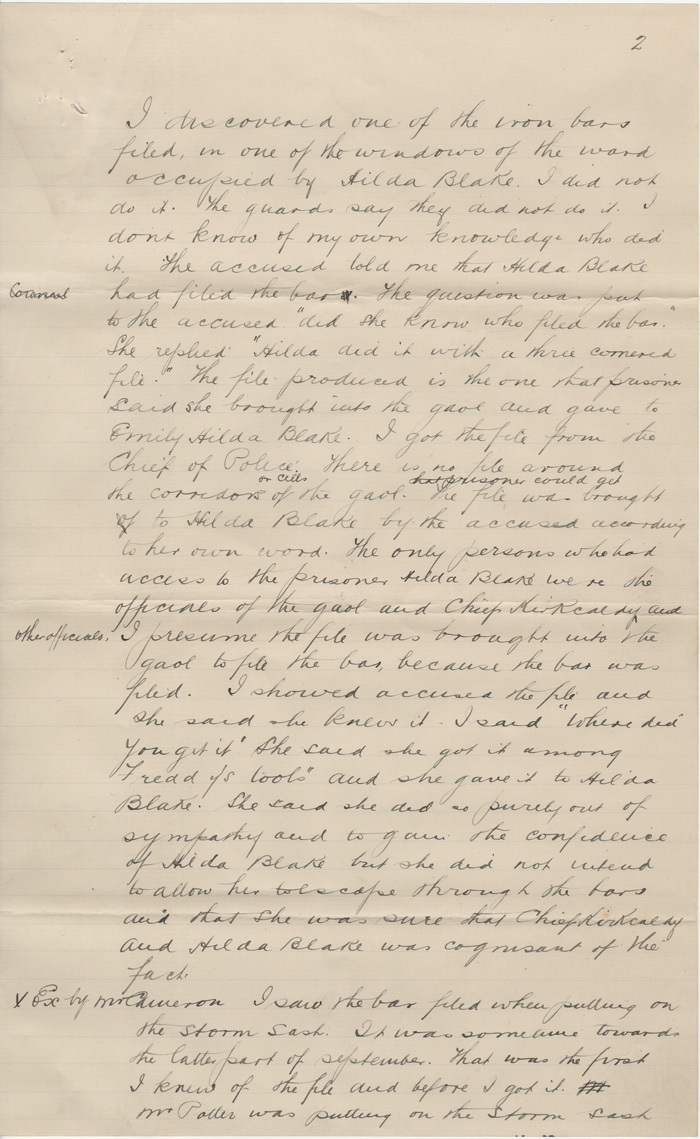 2
I discovered one of the iron bars
filed, in one of the windows of the ward
occupied by Hilda Blake. I did not
do it. The guards say they did not do it. I
dont know of my own knowledge who did
it. The accused told me that Hilda Blake
had filed the bar. The question was put
to the accused "did she know who filed the bar."
She replied "Hilda did it with a three cornered
file." The file produced is the one that prisoner
said she brought into the gaol and gave to
Emily Hilda Blake. I got the file from the
Chief of Police. There is no file around
or cells that prisoner could get
the corridors of the gaol. The file was brought
to Hilda Blake by the accused according
to her own word. The only persons who had
access to the prisoner Hilda Blake were the
officials of the gaol and Chief Kirkcaldy and
other officials. I presume the file was brought into the
gaol to file the bar, because the bar was
filed. I showed accused the file and
she said she knew it. I said "Where did
you get it" She said she got it among
"Freddy's tools" and she gave it to Hilda
Blake. She said she did so purely out of
sympathy and to gain the confidence
of Hilda Blake but she did not intend
to allow her to escape through the bars
and that she was sure that Chief Kirkcaldy
and Hilda Blake was cognisant of the
fact.
X Ex by Mr Cameron I saw the bar filed when putting on
the storm sash. It was sometime towards
the latter part of september. That was the first
I knew of the file and before I got it.
Mr Potter was putting on the storm sash